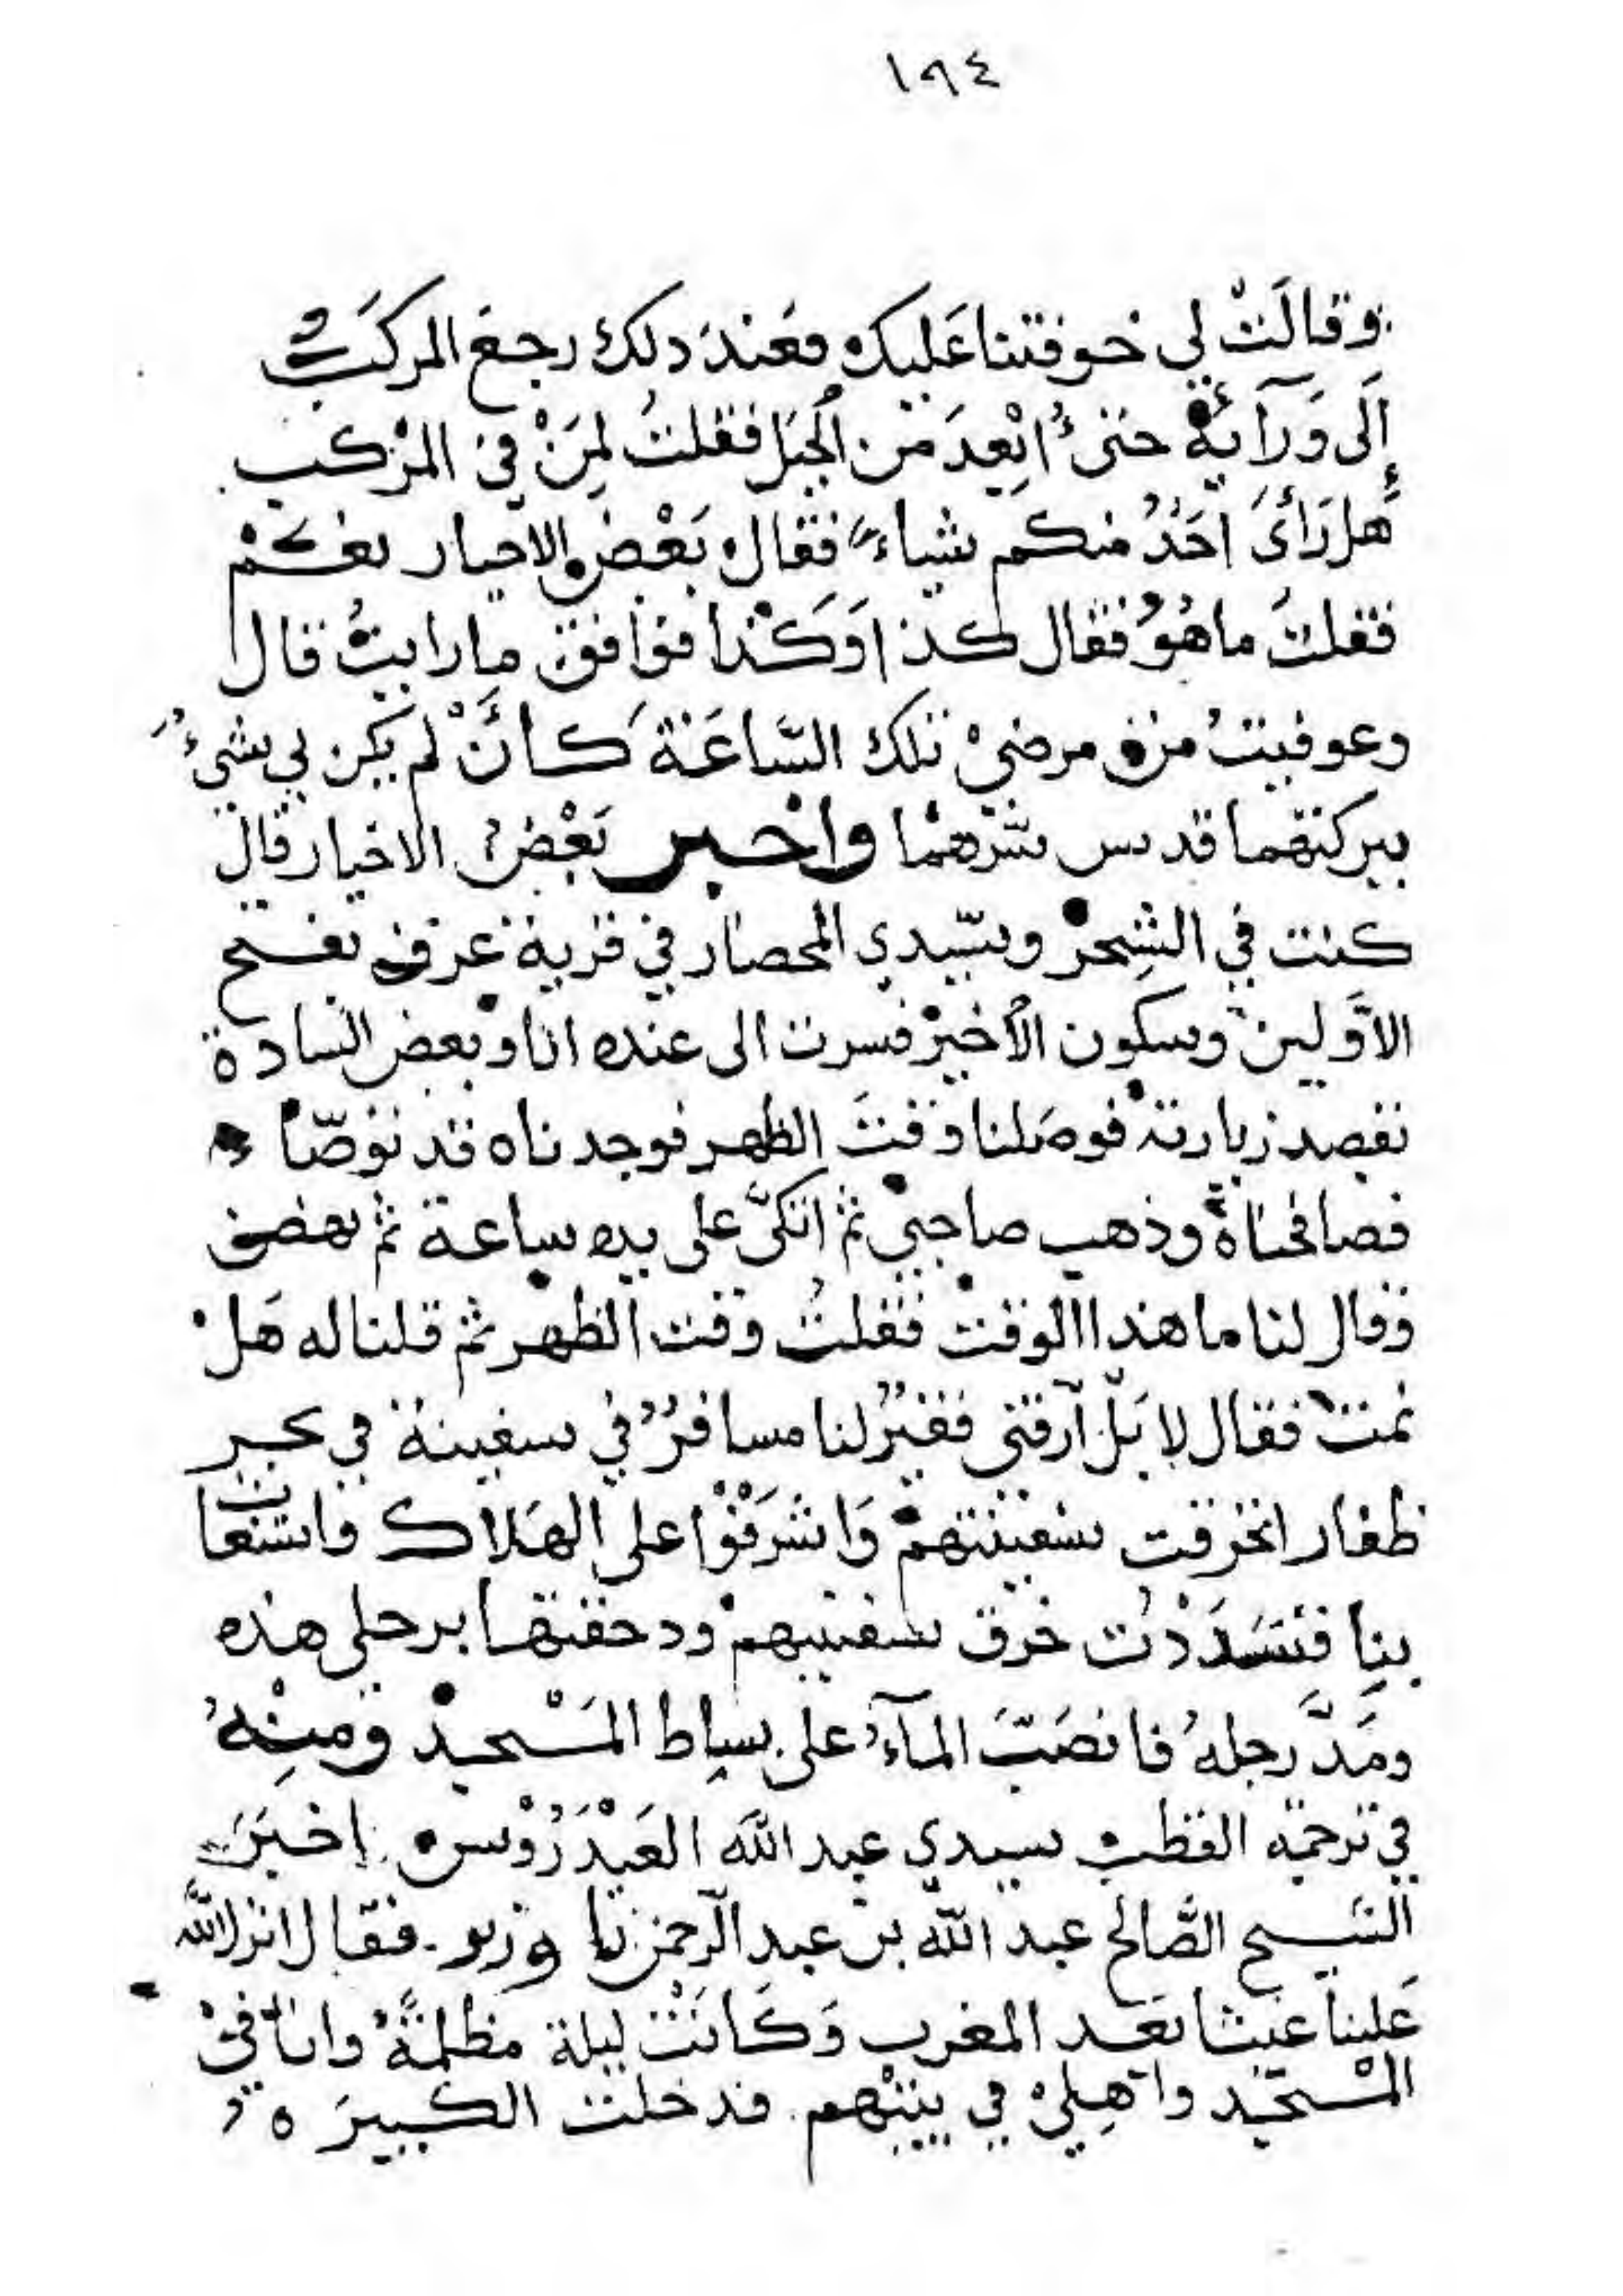 ١٩٤
وقالَتْ لي خوفتنا عَليك فعَندَ دلك رجعَ المركَبُ
إِلَى وَرَآيةْ حتىُ ابْعِدَ من الجبَل فقلتُ لِمَنْ في المرْكب
هَل رَأىَ احَدٌ منكم شياءً فقال بَعْضُ الاخيار نعَمْ
فقلتُ ما هُوُ فقال كذا وَكَذا فوافق ما رايتُ قال
وعوفيتُ من مرضيْ تلك السَّاعَة كَأنَّ لم يكن بي شيءٌ
ببركتهما قدس سرّهُما واخبر بَعْضُ الاخيار قال
كنت في الشِحرْ وسَيّدي المحصار في قرية عرف بفتح
الاوَّلين وسكون الأخيرْ فسرت الى عنده انا وبعض السادة
نقصد زيارتهْ فوصَلنا وقتَ الظهر فوجدناه قد توضّا
فصافحناهُ وذهب صاحبيْ ثم اتكىَّ على يده ساعة ثم نهض
وقال لنا ما هذا الوقتْ فقلتُ وقت الظهر ثم قلنا له هَلْ
نمتْ فقال لا بَلْ آرقني فقيرٌ لنا مسافرٌ في سفينة في بحر
ظفار انخرقت سفينتهمْ وَاشرَفْوْا على الهَلاك واستغاث
بنِا فسَدَدْت خرق سفينتهمْ ودحقتها برجلي هذه
ومَدَّ رجلهُ فانصَبَّ المآءُ على بساط المَسْجدْ ومنِهْ
في ترجمة القطب سيدي عبد اللّه العَيْدَرُوْس اخبَرَ
الشيح الصَّالح عبد اللّه بن عبد الرحمن با وزير فقال انزل اللّه
عَلينا غيثا بعَد المغرب وَكَانَتْ ليلة مظلمَّة وانا فيْ
المسْجد واهِليْ في بيتهم فدخلت الكبيرَه